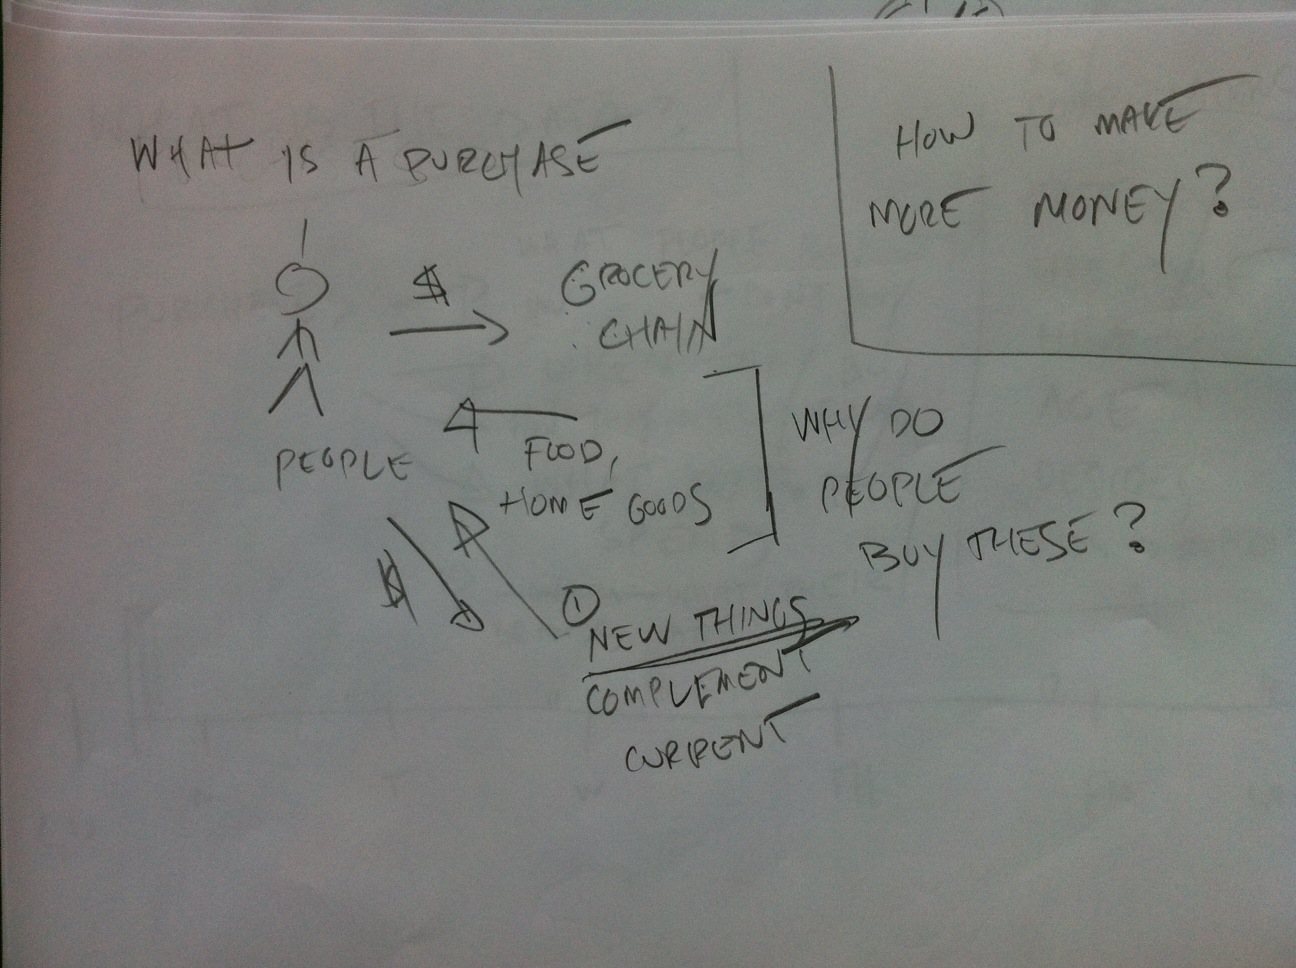 WHAT IS A PURCHASE
HOW TO MAKE
MORE MONEY?
$
GROCERY
CHAIN
PEOPLE
FOOD,
HOME GOODS
WHY DO
PEOPLE
BUY THESE?
$
①
NEW THINGS
COMPLEMENT
CURRENT